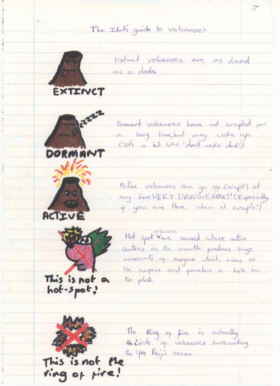 The Idiots guide to volcanoes
Extinct volcanoes are as dead
as a dodo
EXTINCT
zzzz
Dormant volcanoes have not erupted for
a long time, but may wake up
DORMANT
Active volcanoes can go up (erupt) at
any time VERY DANGEROUS! (Especially
if you are there when it erupts!)
ACTIVE
Hot spots are around where active
centres in the mantle produce huge
amounts of magma which rises to
the surface and punches a hole in
the plate.
This is not a
hot-spot!
The Ring of fire is actually
of volcanoes surrounding
the
This is not the
ring of fire!